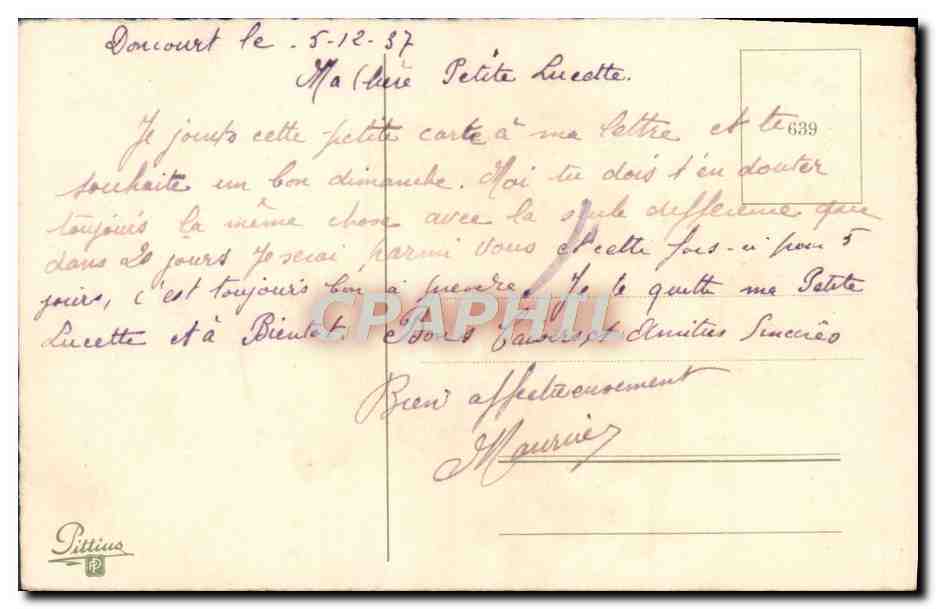 Doncourt le . 5-12-37
Ma Chère Petite Lucette.
Je joints cette petite carte à ma lettre et te
639
souhaite un bon dimanche. Moi tu dois t'en douter
toujours la même chose avec la seule difference que
dans 20 jours Je serai parmi vous et cette fois-ci pour 5
jours, c'est toujours bon à prendre. Je te quitte ma Petite
Lucette et à Bientot. Bons Baisers et Amitiés Sincères
CPAPHIL
Bien affectueusement
Maurice
Pittius